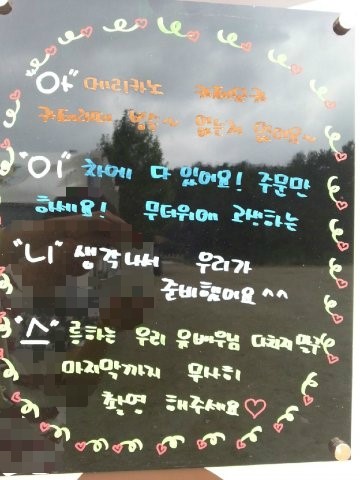 "아" 메리카노
없는게 없어요~
"이" 차에 다 있어요! 주문만
하세요! 무더위에 고생하는
"니" 생각나서 우리가
준비했어요^^
"스" 릉하는 우리 유배우님 다치지 말구
마지막까지 무사히
촬영 해주세요♡